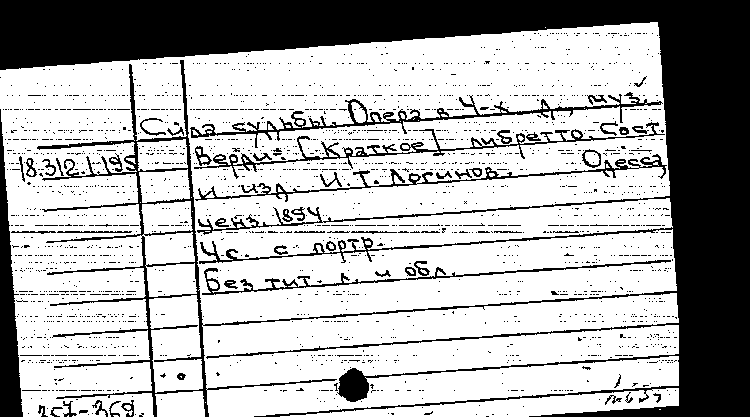 Сила судьбы. Опера в 4-х д., муз.
18.312.1.195 Верди. [Краткое] либретто. Сост.
и изд. И. Т. Логинов. Одесса,
ценз. 1894.
4 с. с портр.
Без тит. л. и обл.
357-368.